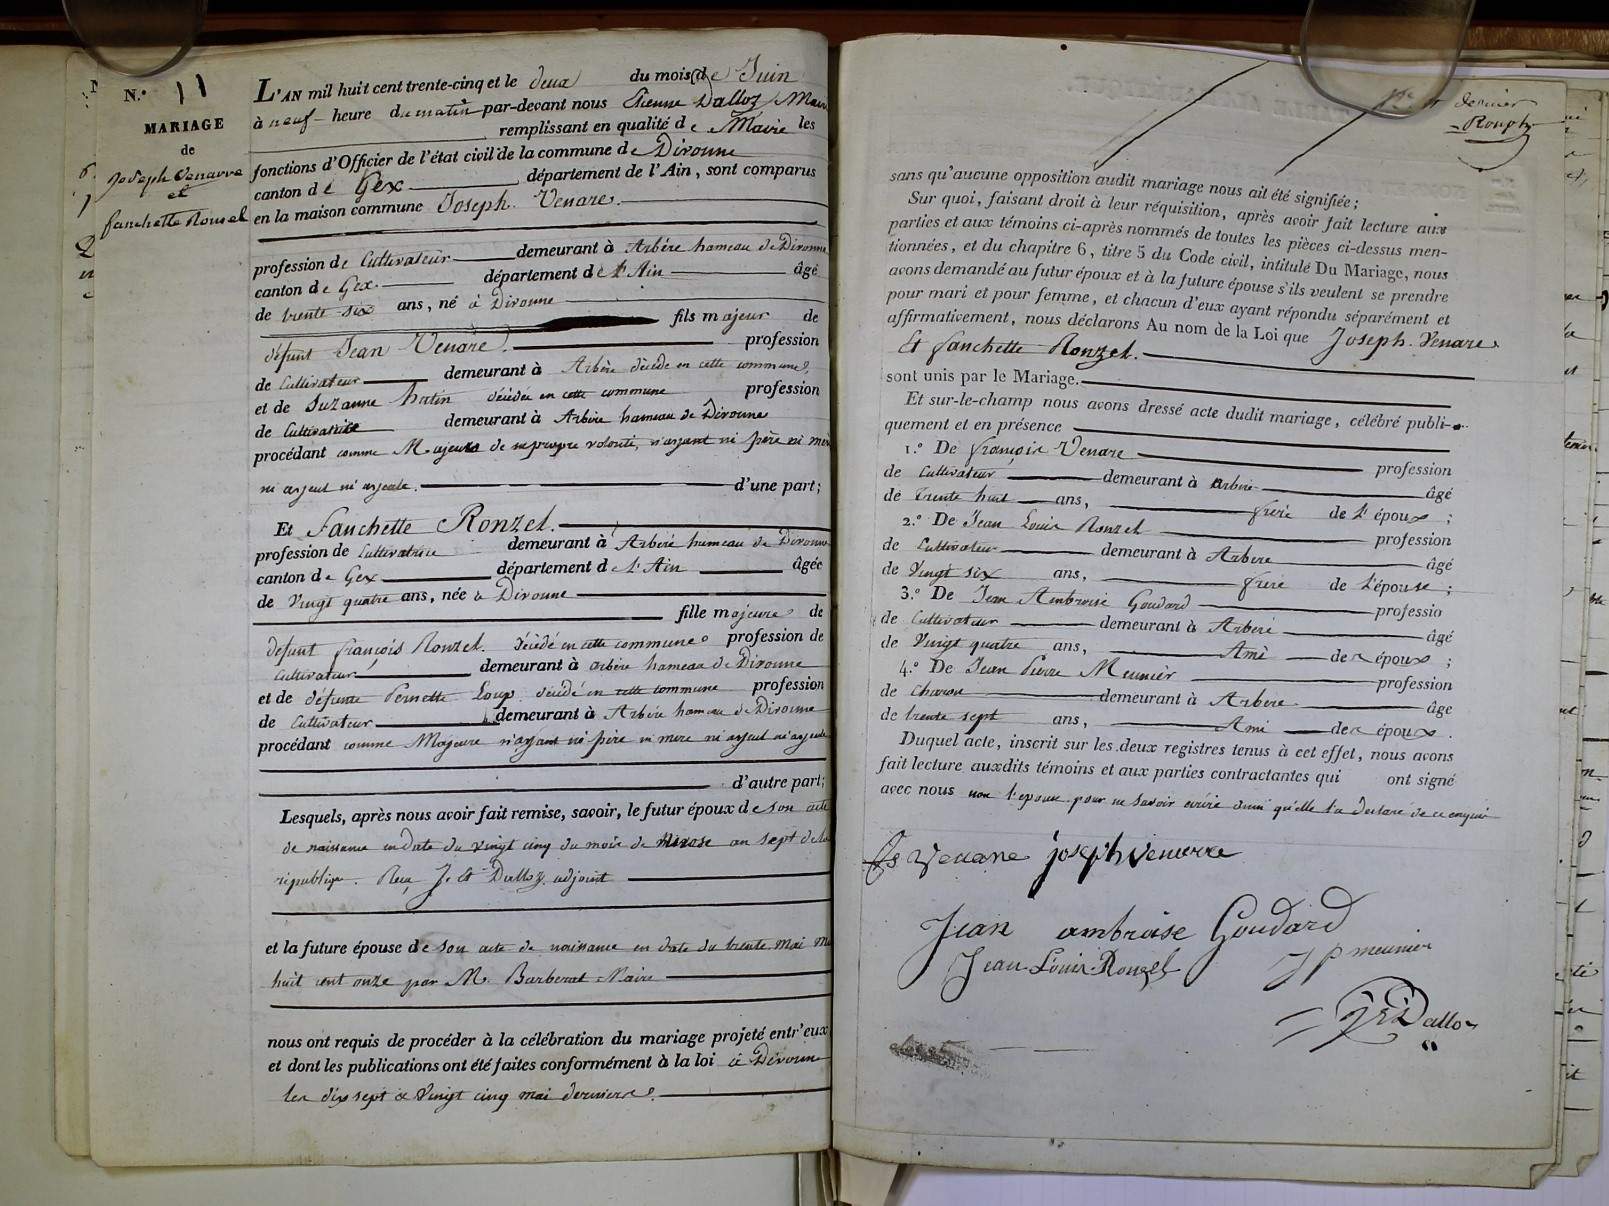 N.º 11
MARIAGE
de
Joseph Venarre
et
fanchette Ronzel
L'AN mil huit cent trente-cinq et le deux du mois de Juin
à neuf heure du matin par-devant nous Etienne Dalloz Maire
remplissant en qualité de Maire les
fonctions d'Officier de l'état civil de la commune de Divonne
canton de Gex département de l'Ain, sont comparus
en la maison commune Joseph Venare.
profession de Cultivateur demeurant à Arbére hameau de Divonne
canton de Gex. département de l'Ain âgé
de trente-six ans, né à Divonne
fils majeur de
défunt Jean Venare. profession
de Cultivateur demeurant à Arbère décédé en cette commune,
et de Suzanne décédée en cette commune profession
de Cultivatrice demeurant à Arbère hameau de Divonne
procédant comme Majeur de sa propre volonté, n'ayant ni père ni mère
ni ayeul ni ayeule. d'une part;
Et Fanchette Ronzel.
profession de Cultivatrice demeurant à Arbère hameau de Divonne
canton de Gex département de l'Ain âgée
de Vingt quatre ans, née à Divonne
fille majeure de
défunt françois Ronzel. décédé en cette commune profession de
Cultivateur demeurant à arbère hameau de Divonne
et de défunte Pernette Loup décédé en cette commune profession
de Cultivateur demeurant à Arbère hameau de Divonne
procédant comme Majeure n'ayant ni père ni mere ni ayeul ni ayeule
d'autre part;
Lesquels, après nous avoir fait remise, savoir, le futur époux de son acte
de naissance en date du vingt cinq du mois de Nivose an sept de la
républiqe. Reçu J. E Dalloz adjoint
et la future épouse de son acte de naissance en date du trente Mai Mil
huit cent onze par M. Barberat Maire
nous ont requis de procéder à la célébration du mariage projeté entr'eux
et dont les publications ont été faites conformément à la loi à Divonne
les dix sept & Vingt cinq mai derniers.
dernier
sans qu'aucune opposition audit mariage nous ait été signifiée;
Sur quoi, faisant droit à leur réquisition, après avoir fait lecture aux
parties et aux témoins ci-après nommés de toutes les pièces ci-dessus men-
tionnées, et du chapitre 6, titre 5 du Code civil, intitulé Du Mariage, nous
avons demandé au futur époux et à la future épouse s'ils veulent se prendre
pour mari et pour femme, et chacun d'eux ayant répondu séparément et
affirmativement, nous déclarons Au nom de la Loi que Joseph Venare
Et fanchette Ronzel.
sont unis par le Mariage.
Et sur-le-champ nous avons dressé acte dudit mariage, célébré publi-
quement et en présence
1.º De françois Venare profession
de Cultivateur demeurant à Arbère âgé
de Trente huit ans, frère de l'époux;
2.º De Jean Louis Ronzel profession
de Cultivateur demeurant à Arbere âgé
de Vingt six ans, frere de l'épouse;
3.º De Jean Ambroise Goudard professio
de Cultivateur demeurant à Arberé âgé
de Vingt quatre ans, Ami des époux;
4.º De Jean Pierre Meunier profession
de Charon demeurant à Arbere âgé
de trente sept ans, Ami des époux.
Duquel acte, inscrit sur les deux registres tenus à cet effet, nous avons
fait lecture auxdits témoins et aux parties contractantes qui ont signé
avec nous non l'epouse pour ne savoir écrire ainsi qu'elle l'a déclaré de ce enquise
fs Venare joseph venerre
Jean ambroise Goudard
Jean-Louis Ronzel J p meunier
J E Dalloz